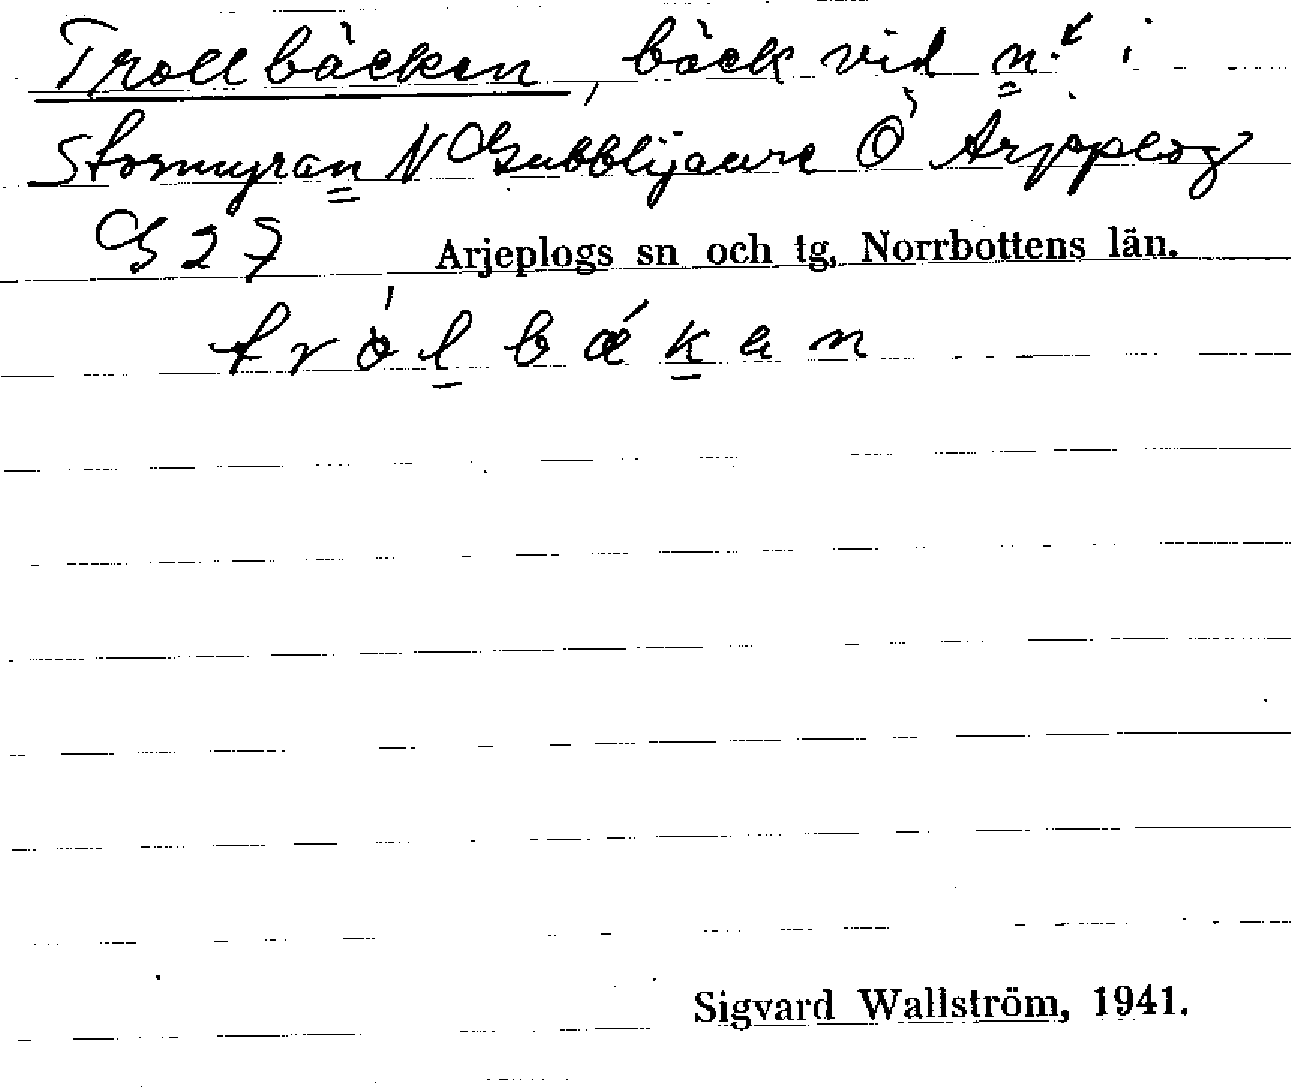 Trollbäcken, bäck vid n. i
Stormyran N Gubblijaure Ö Arjeplog
G 27 Arjeplogs sn och tg, Norrbottens län.
tròlbǽkan
Sigvard Wallström, 1941.